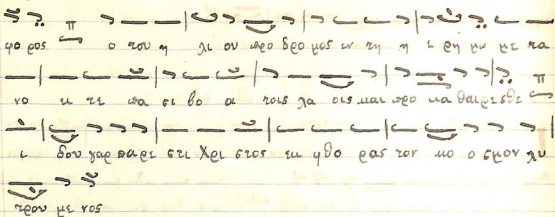 φο ρος ο του η λι ου προ δρο μος εν τη η ε ρη μω με τα
νο ει τε πα σι βο α τοις λα οις και προ κα θαι ρε σθε
ι δου γαρ παρε στι Χρι στος εκ φθο ρας τον κο ο σμον λυ
τρου με νος